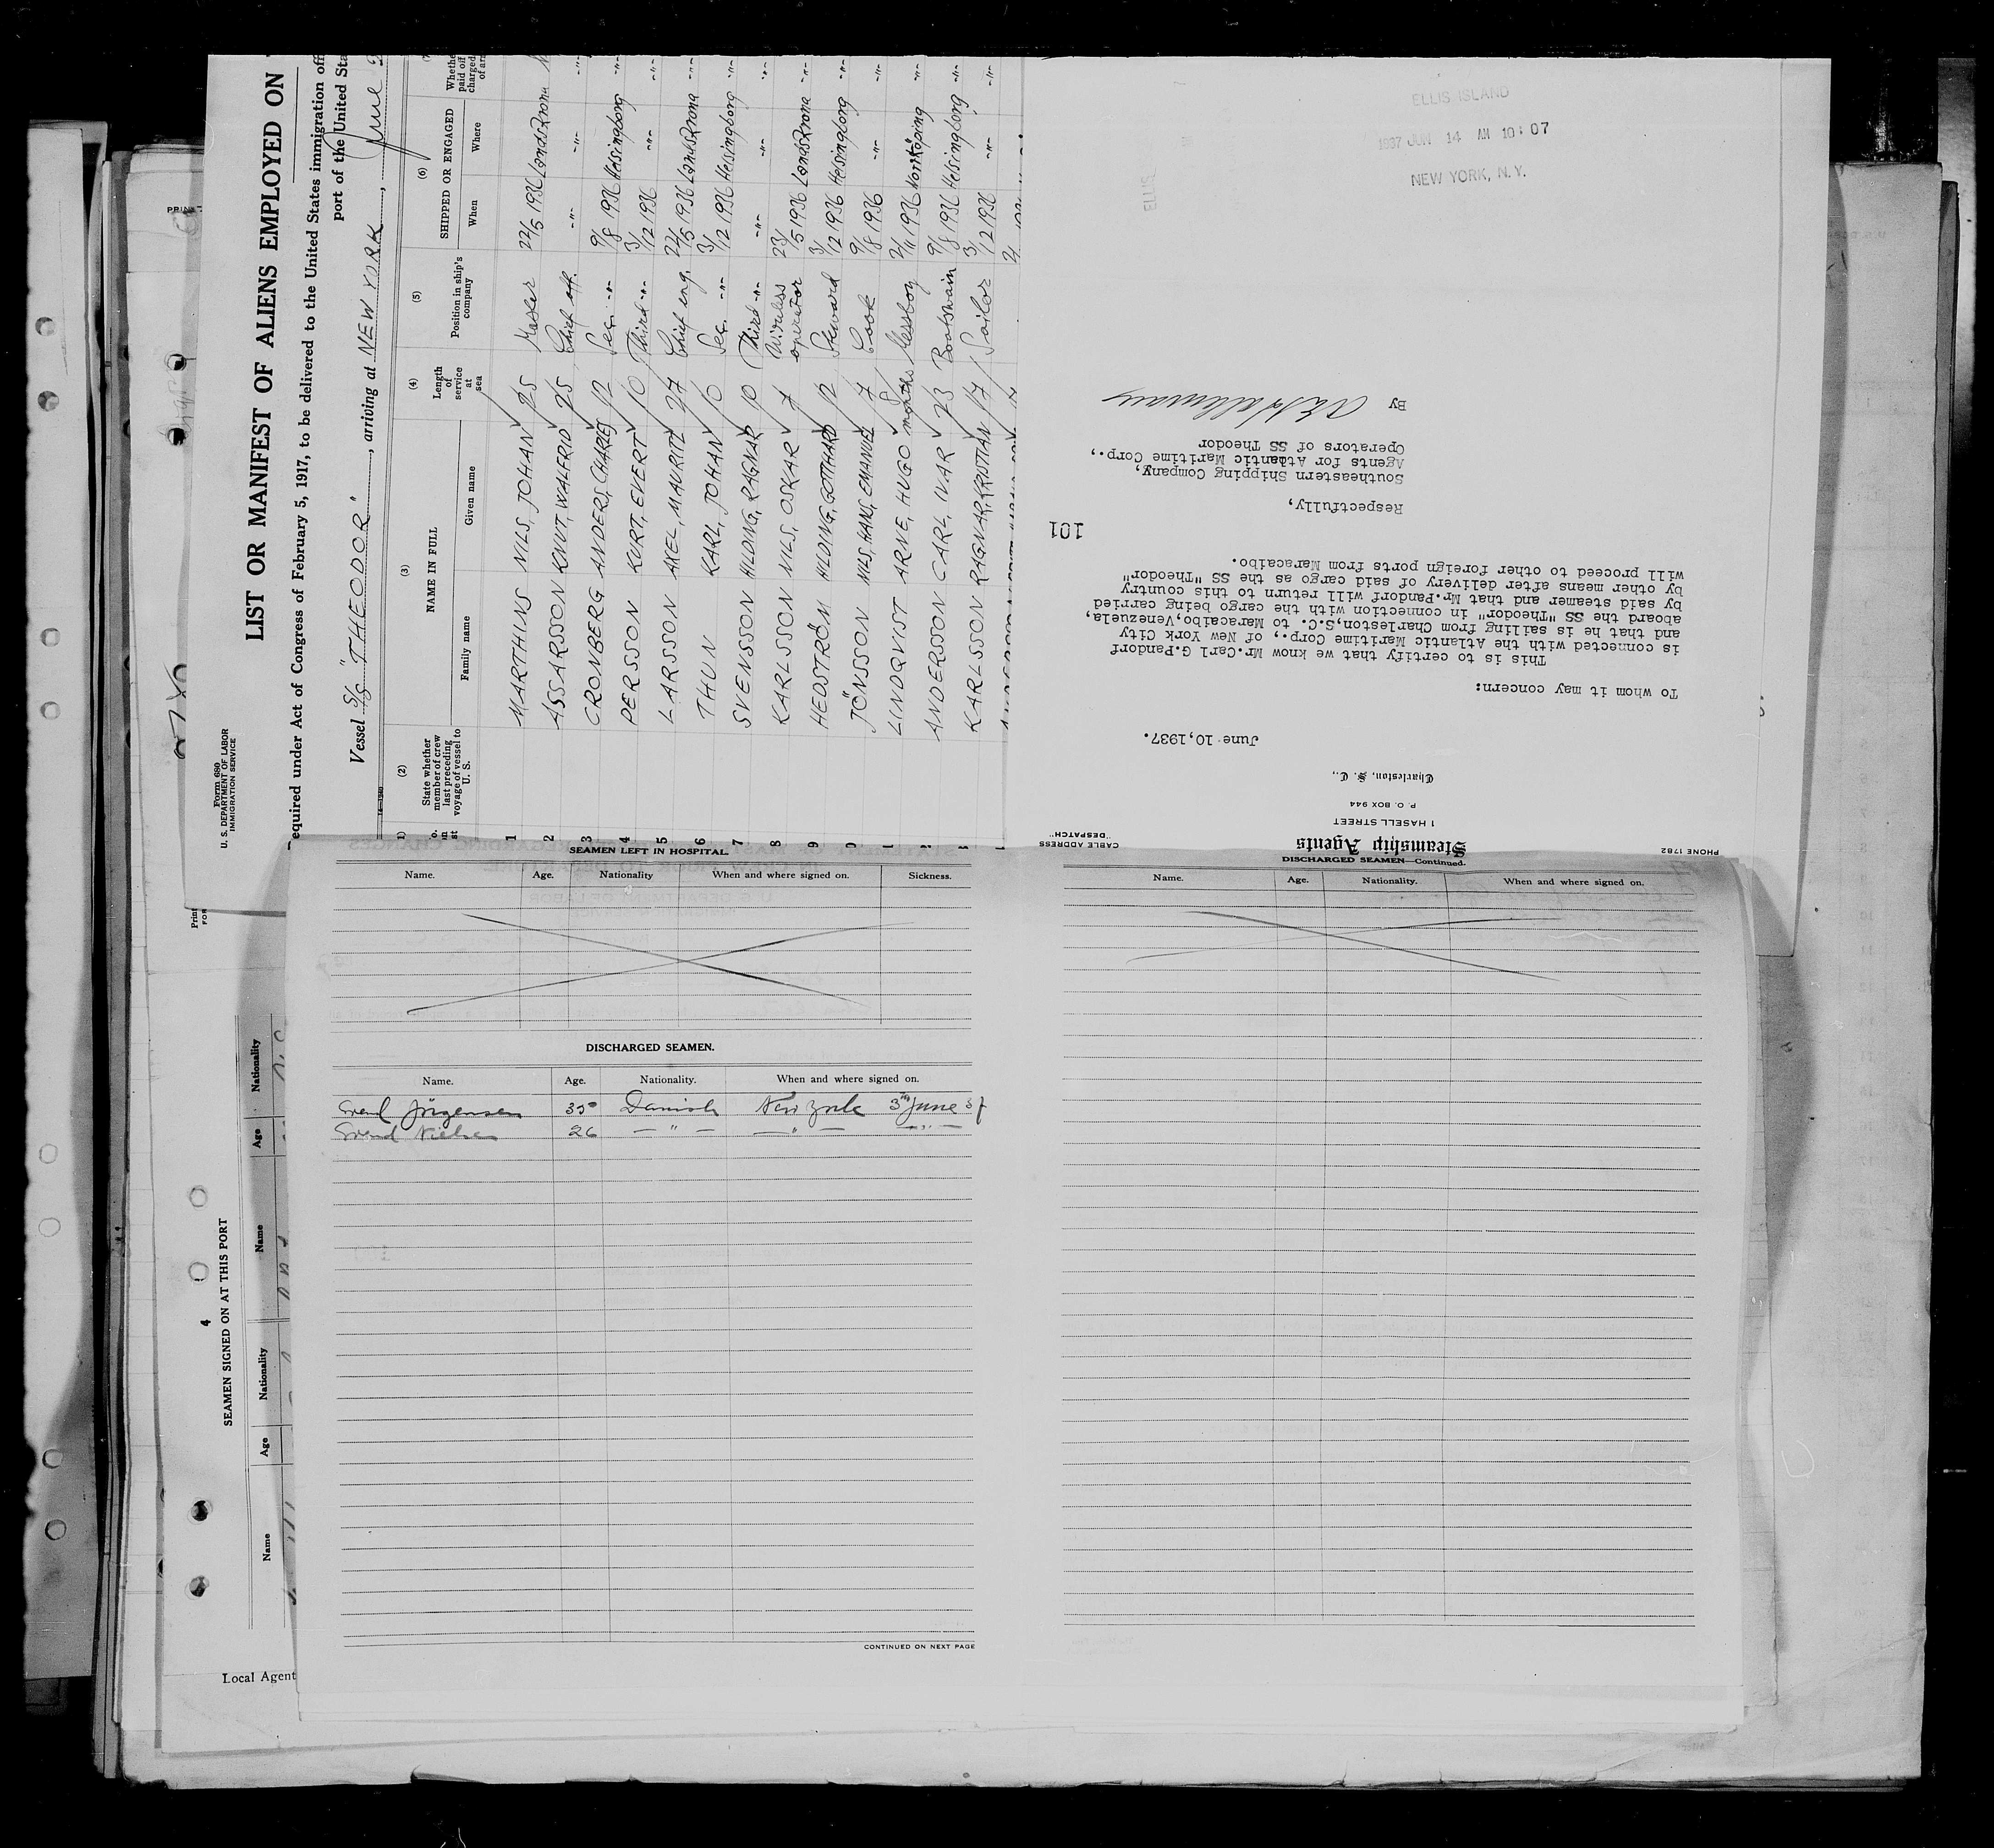 Form 680
U. S. DEPARTMENT OF LABOR
IMMIGRATION SERVICE
LIST OR MANIFEST OF ALIENS EMPLOYED ON
equired under Act of Congress of February 5, 1917, to be delivered to the United States immigration off
port of the United Sta
Vessel S/S "THEODOR", arriving at NEW YORK, June 2
(2) (3) (4) (5) (6)
State whether member of crew last preceding voyage of vessel to U. S.
NAME IN FULL
Family name Given name
Length of service at sea
Position in ship's company
SHIPPED OR ENGAGED
When Where
1 MARTHINS NILS, JOHAN 25 Master 22/5 1936 Landskrona
2 ASSARSSON KNUT, WALFRID 25 Chief off. -"- -"- -"-
3 CRONBERG ANDERS, CHARLES 12 Sec. -"- 9/8 1936 Helsingborg -"-
4 PERSSON KURT, EVERT 10 Third -"- 3/12 1936 -"- -"-
5 LARSSON AXEL, MAURITZ 27 Chief eng. 22/5 1936 Landskrona -"-
6 THUN KARL, JOHAN 10 Sec. -"- 3/12 1936 Helsingborg -"-
7 SVENSSON HILDING, RAGNAR 10 Third -"- -"- -"- -"-
8 KARLSSON NILS, OSKAR 7 Wireless operator 23/5 1936 Landskrona -"-
9 HEDSTRÖM HILDING, GOTTHARD 12 Steward 3/12 1936 Helsingborg -"-
JÖNSSON NILS, HANS, EMANUEL 7 Cook 9/8 1936 -"- -"-
LINDQVIST ARNE, HUGO months Messboy 2/11 1936 Norrköping -"-
ANDERSSON CARL, IVAR 23 Boatswain 9/8 1936 Helsingborg -"-
KARLSSON RAGNAR, KRISTIAN 17 Sailor 3/12 1936 -"- -"-
PHONE 1782
CABLE ADDRESS
"DESPATCH"
Steamship Agents
1 HASELL STREET
P. O. BOX 944
Charleston, S. C.,
June 10,1937.
To whom it may concern:
This is to certify that we know Mr.Carl G.Pandorf
is connected with the Atlantic Maritime Corp., of New York City
and that he is sailing from Charleston,S.C. to Maracaibo,Venezuela,
aboard the SS "Theodor" in connection with the cargo being carried
by said steamer and that Mr.Pandorf will return to this country
by other means after delivery of said cargo as the SS "Theodor"
will proceed to other foreign ports from Maracaibo.
101
Respectfully,
Southeastern Shipping Company,
Agents for Atlantic Maritime Corp.,
Operators of SS Theodor
By
ELLIS ISLAND
1937 JUN 14 AM 10:07
NEW YORK, N.Y.
ELLIS
SEAMEN LEFT IN HOSPITAL.
Name. Age. Nationality When and where signed on. Sickness.
DISCHARGED SEAMEN.
Name. Age. Nationality. When and where signed on.
Svend Jörgensen 35 Danish New York 3rd June 37
Svend Nielsen 26 — " — — " — — " —
CONTINUED ON NEXT PAGE
DISCHARGED SEAMEN—Continued.
Name. Age. Nationality. When and where signed on.
4
SEAMEN SIGNED ON AT THIS PORT
Name Age Nationality Name Age Nationality
Local Agent